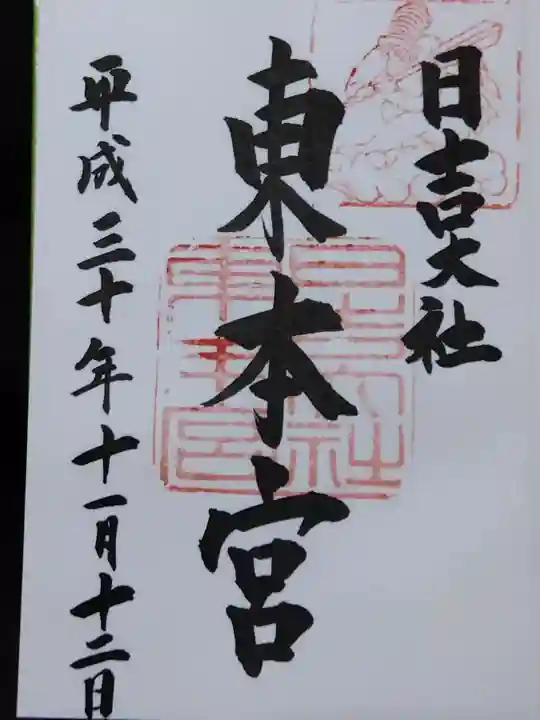 日吉大社
東本宮
平成三十年十一月十二日